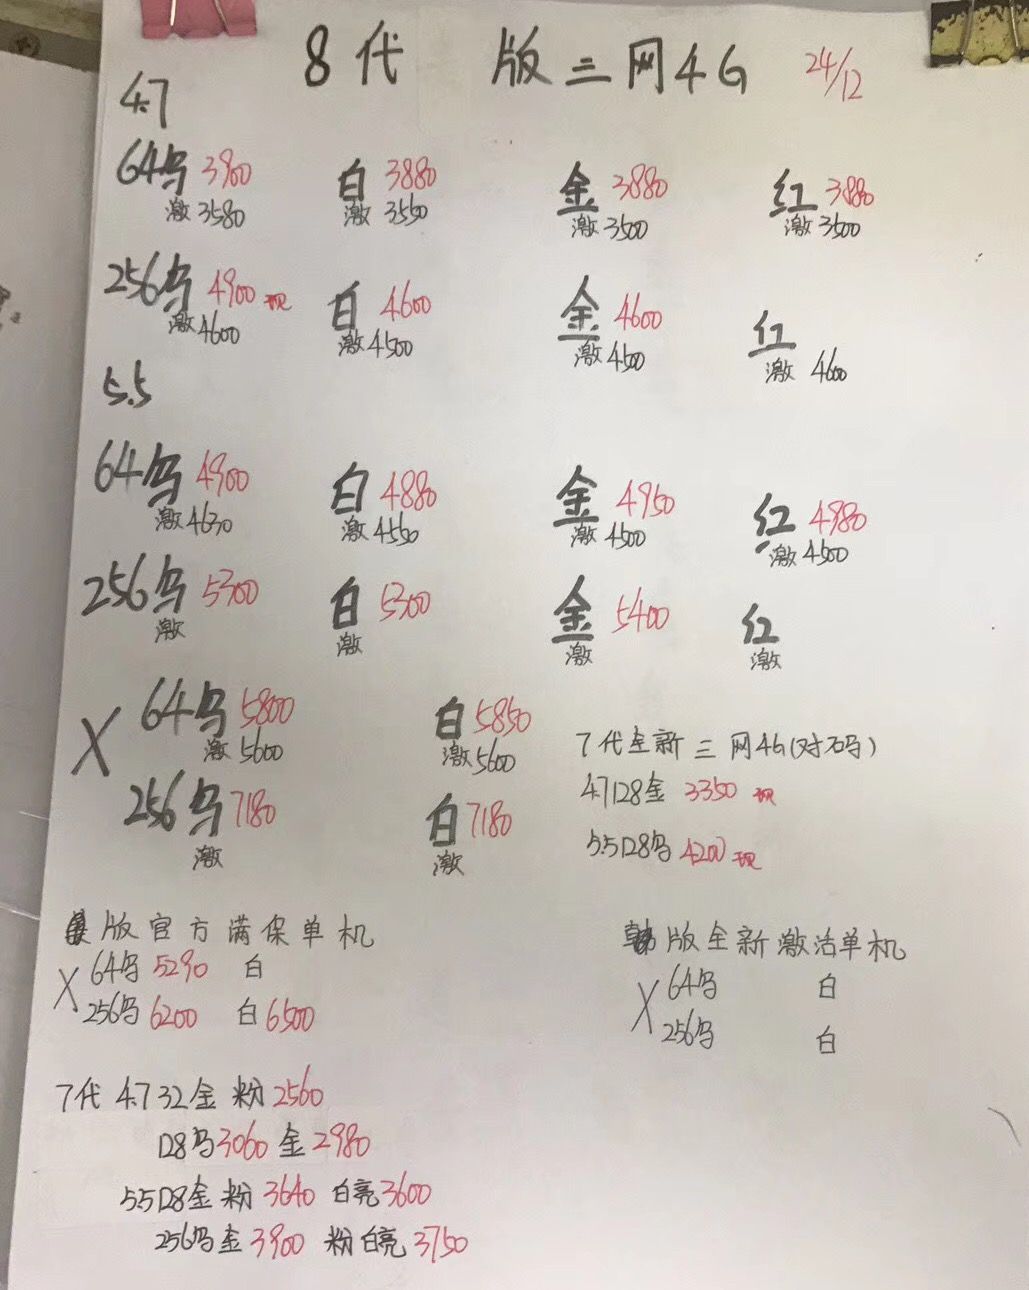 8代 版三网4G 24/12
4.7
64乌3900 白3880 金3880 红3880
激3580 激3550 激3500 激3500
256乌4900现 白4600 金4600 红
激4600 激4500 激4500 激4600
5.5
64乌4900 白4880 金4950 红4980
激4630 激4550 激4500 激4500
256乌5300 白5300 金5400 红
激 激 激 激
X 64乌5800 白5850
激5600 激5600
256乌7180 白7180
激 激
7代全新三网4G(对码)
4.7128金 3350 现
5.5128乌4200现
版官方满保单机
X 64乌5290 白
256乌6200 白6500
韩版全新激活单机
X 64乌 白
256乌 白
7代 4.732金粉2560
128乌3060 金2980
5.5128金粉3640 白亮3600
256乌金3900 粉白亮3750